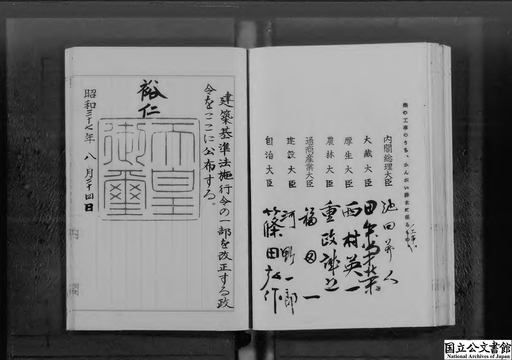 内閣総理大臣 池田勇人
大蔵大臣 田中角榮
厚生大臣 西村英一
農林大臣 重政誠之
通商産業大臣 福田一
建設大臣 河野一郎
自治大臣 篠田弘作
建築基準法施行令の一部を改正する政
令をここに公布する。
裕仁
天皇
御璽
昭和三十七年八月二十四日
国立公文書館
National Archives of Japan